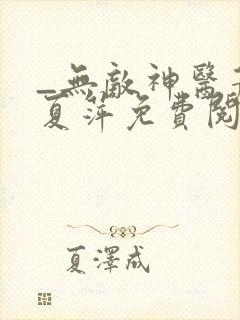 _無敵神醫
夏萍免費閱
夏澤成